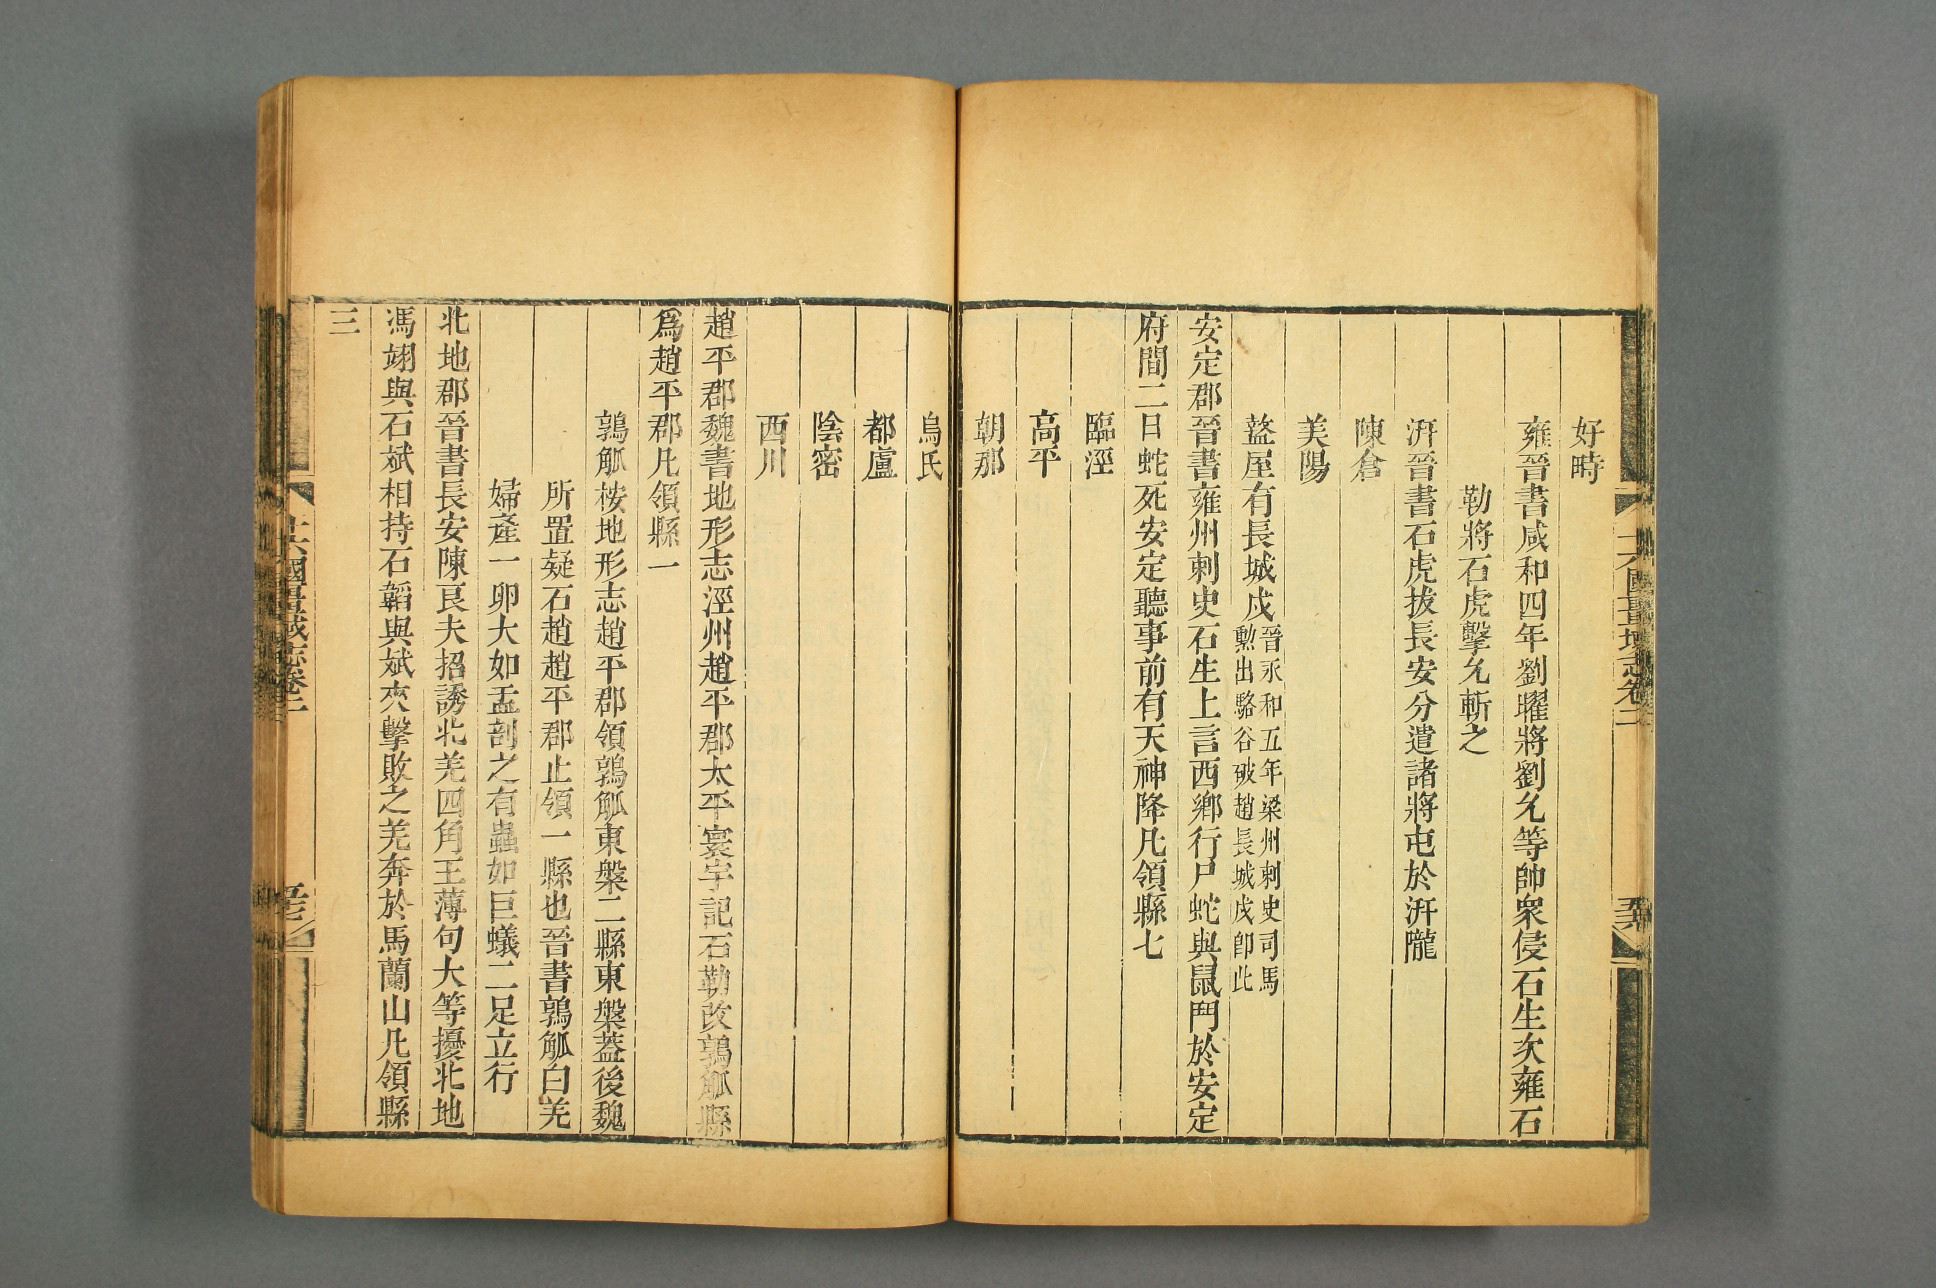 好畤
雍晉書咸和四年劉曜將劉允等帥衆侵石生次雍石
勒將石虎擊允斬之
汧晉書石虎拔長安分遣諸將屯於汧隴
陳倉
美陽
盩厔有長城戍晉永和五年梁州刺史司馬
勲出駱谷破趙長城戍卽此
安定郡晉書雍州刺史石生上言西鄉行尸蛇與鼠鬥於安定
府間二日蛇死安定聽事前有天神降凡領縣七
臨涇
高平
朝那
烏氏
都盧
陰密
西川
趙平郡魏書地形志涇州趙平郡太平寰宇記石勒改鶉觚縣
爲趙平郡凡領縣一
鶉觚桉地形志趙平郡領鶉觚東槃二縣東槃蓋後魏
所置疑石趙趙平郡止領一縣也晉書鶉觚白羌
婦產一卵大如盂剖之有蟲如巨蟻二足立行
北地郡晉書長安陳良夫招誘北羌四角王薄句大等擾北地
馮翊與石斌相持石韜與斌夾擊敗之羌奔於馬蘭山凡領縣
三
十六國疆域志卷二